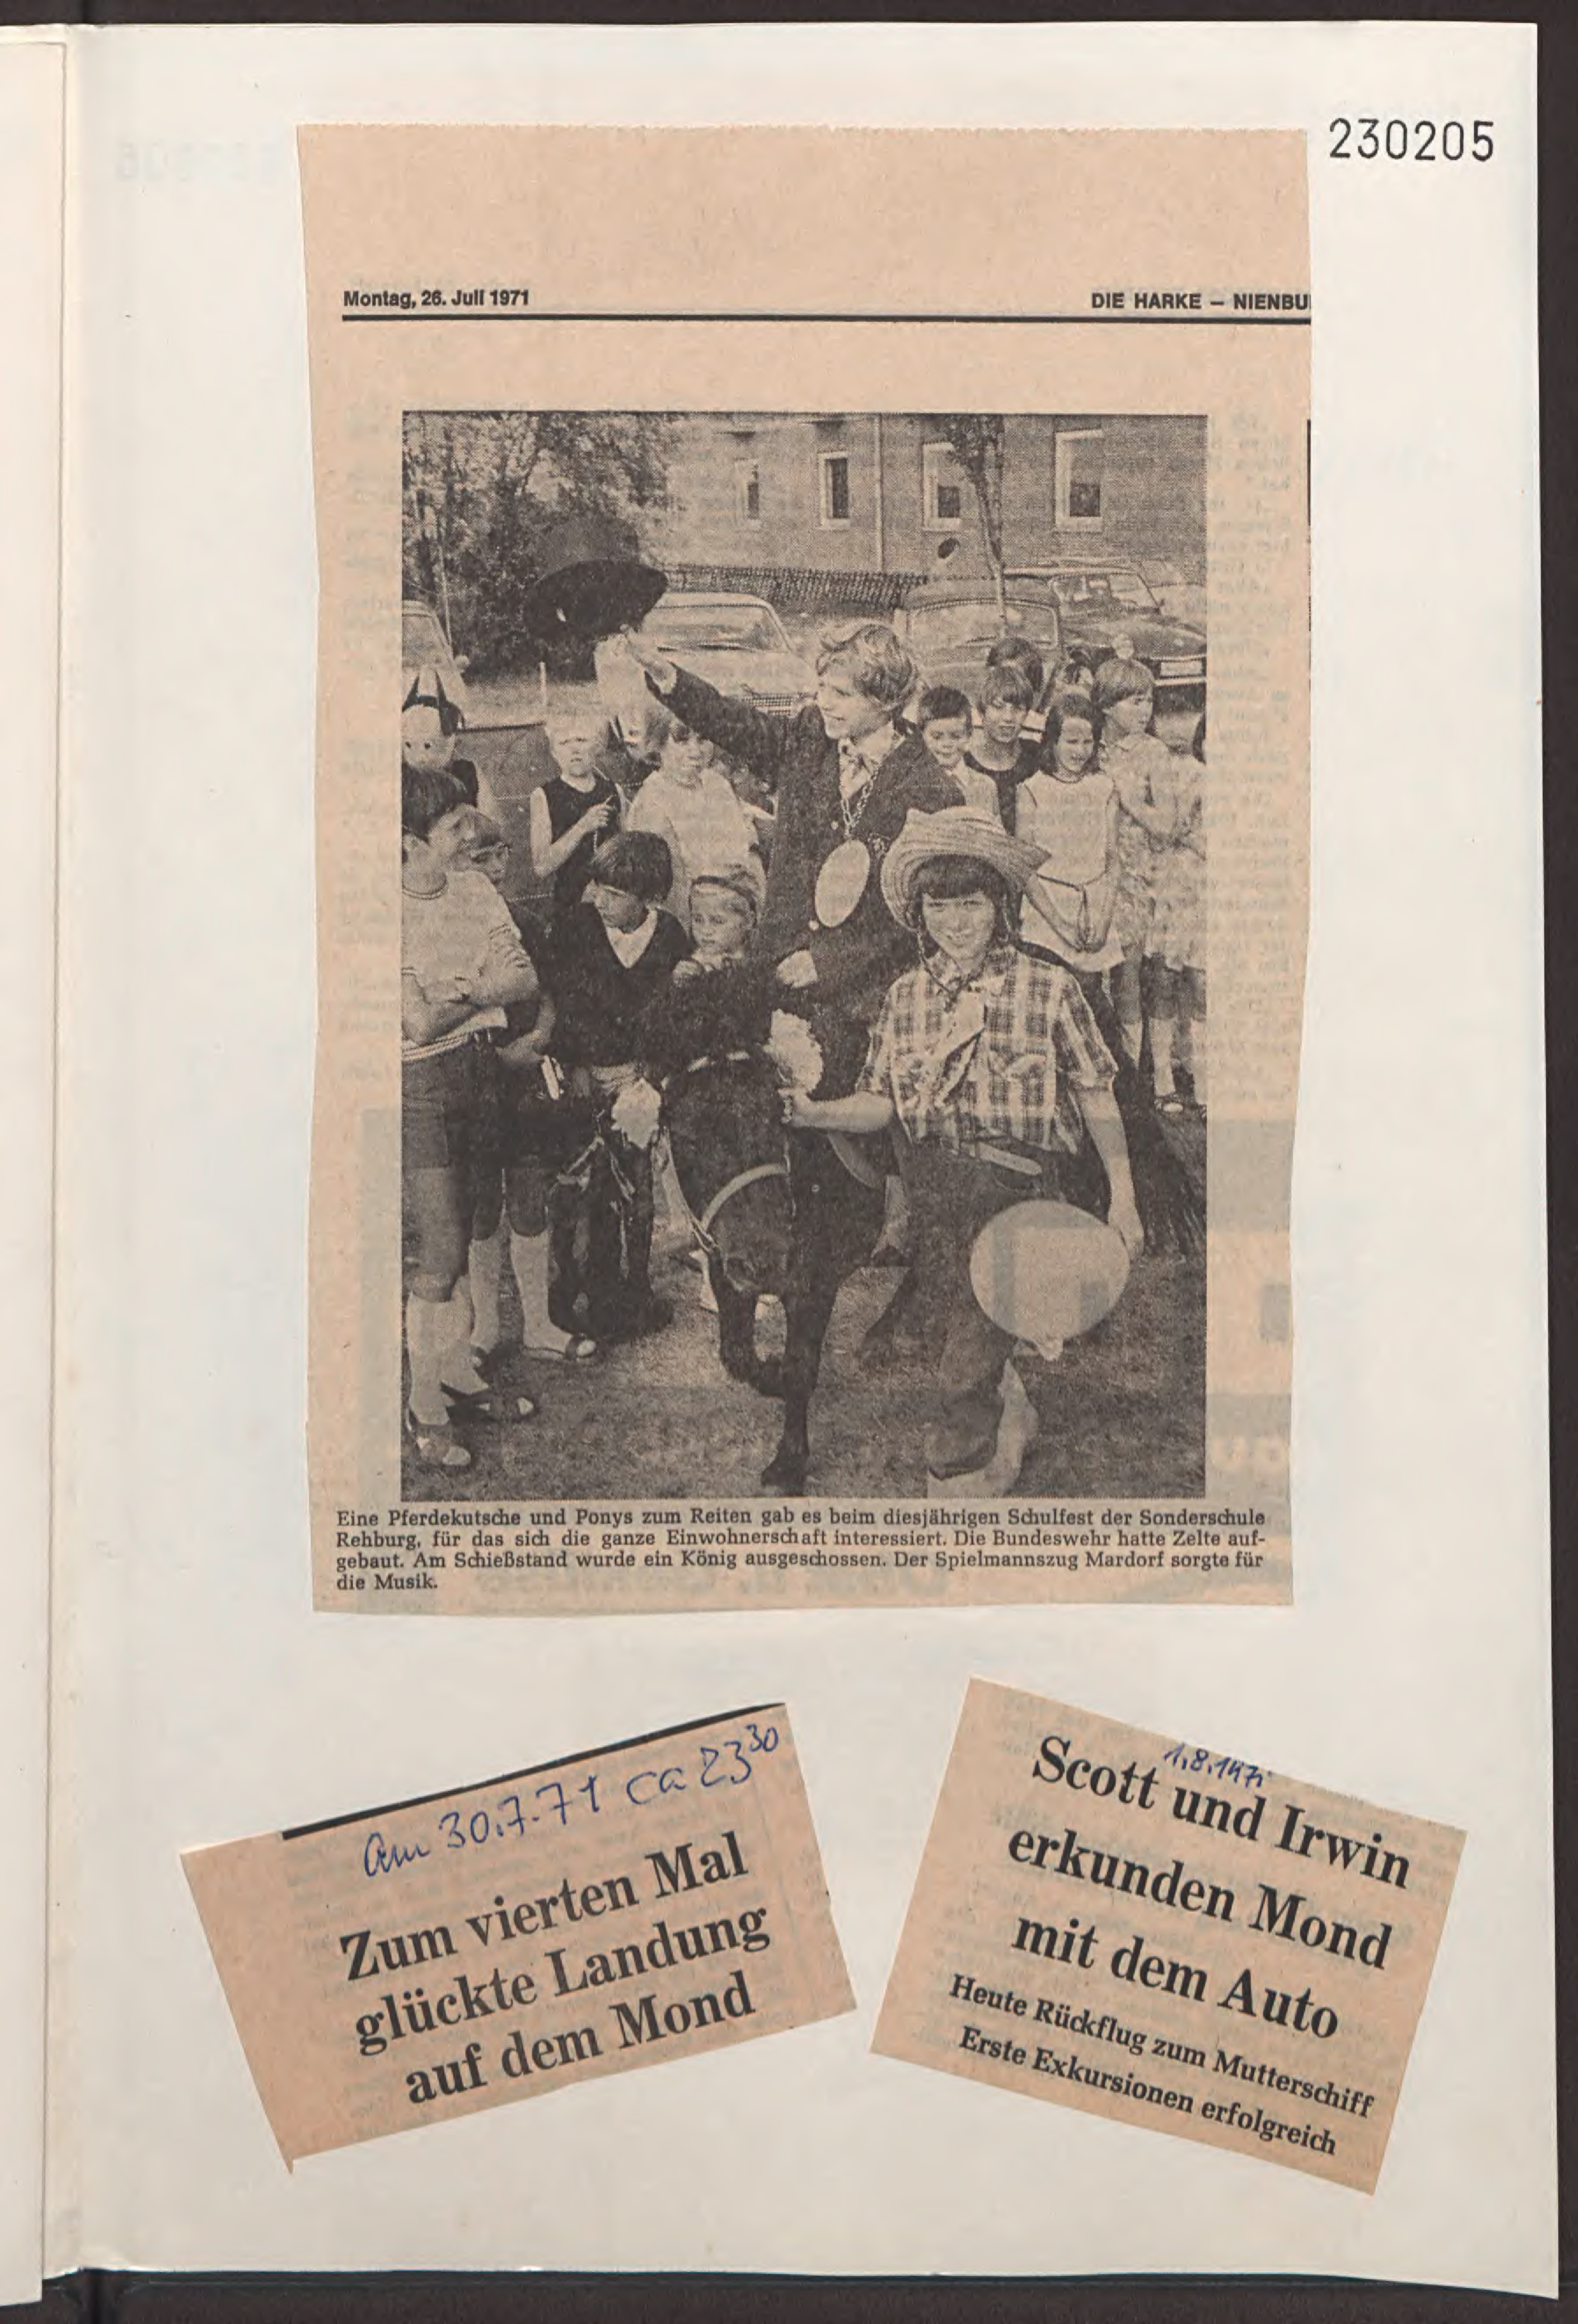 230205
Montag, 26. Juli 1971
DIE HARKE – NIENBU
Eine Pferdekutsche und Ponys zum Reiten gab es beim diesjährigen Schulfest der Sonderschule
Rehburg, für das sich die ganze Einwohnerschaft interessiert. Die Bundeswehr hatte Zelte auf-
gebaut. Am Schießstand wurde ein König ausgeschossen. Der Spielmannszug Mardorf sorgte für
die Musik.
Am 30.7.71 ca 23³⁰
Zum vierten Mal
glückte Landung
auf dem Mond
1.8.1971
Scott und Irwin
erkunden Mond
mit dem Auto
Heute Rückflug zum Mutterschiff
Erste Exkursionen erfolgreich